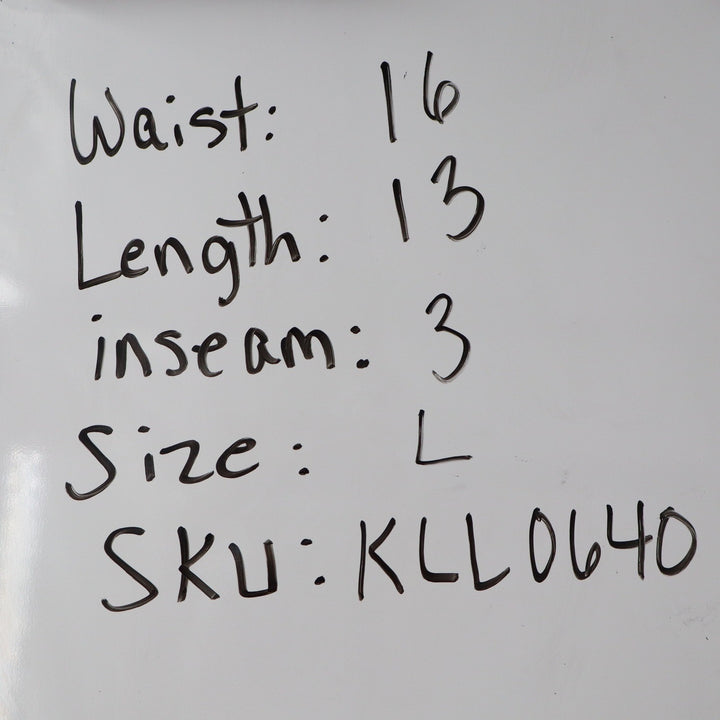 Waist: 16
Length: 13
inseam: 3
Size: L
SKU: KLL0640